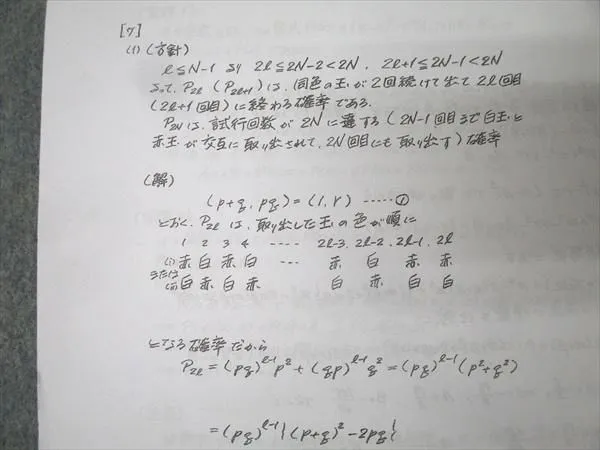 [7]
(1) (方針)
l≦N-1 より 2l≦2N-2<2N, 2l+1≦2N-1<2N
よって, P2l (P2l+1) は, 同色の玉が2回続けて出て 2l回目
(2l+1回目) に終わる確率である.
P2Nは, 試行回数が 2N に達する (2N-1回目まで白玉と
赤玉が交互に取り出されて, 2N回目にも取り出す) 確率
(解)
(p+q, pq) = (1, r) ----- ①
とおく. P2l は, 取り出した玉の色が順に
1 2 3 4 ---- 2l-3, 2l-2, 2l-1, 2l
(i) 赤 白 赤 白 --- 赤 白 赤 赤
または
(ii) 白 赤 白 赤 白 赤 白 白
となる確率だから
P2l = (pq)^{l-1} p^2 + (qp)^{l-1} q^2 = (pq)^{l-1} (p^2+q^2)
= (pq)^{l-1} {(p+q)^2 - 2pq}